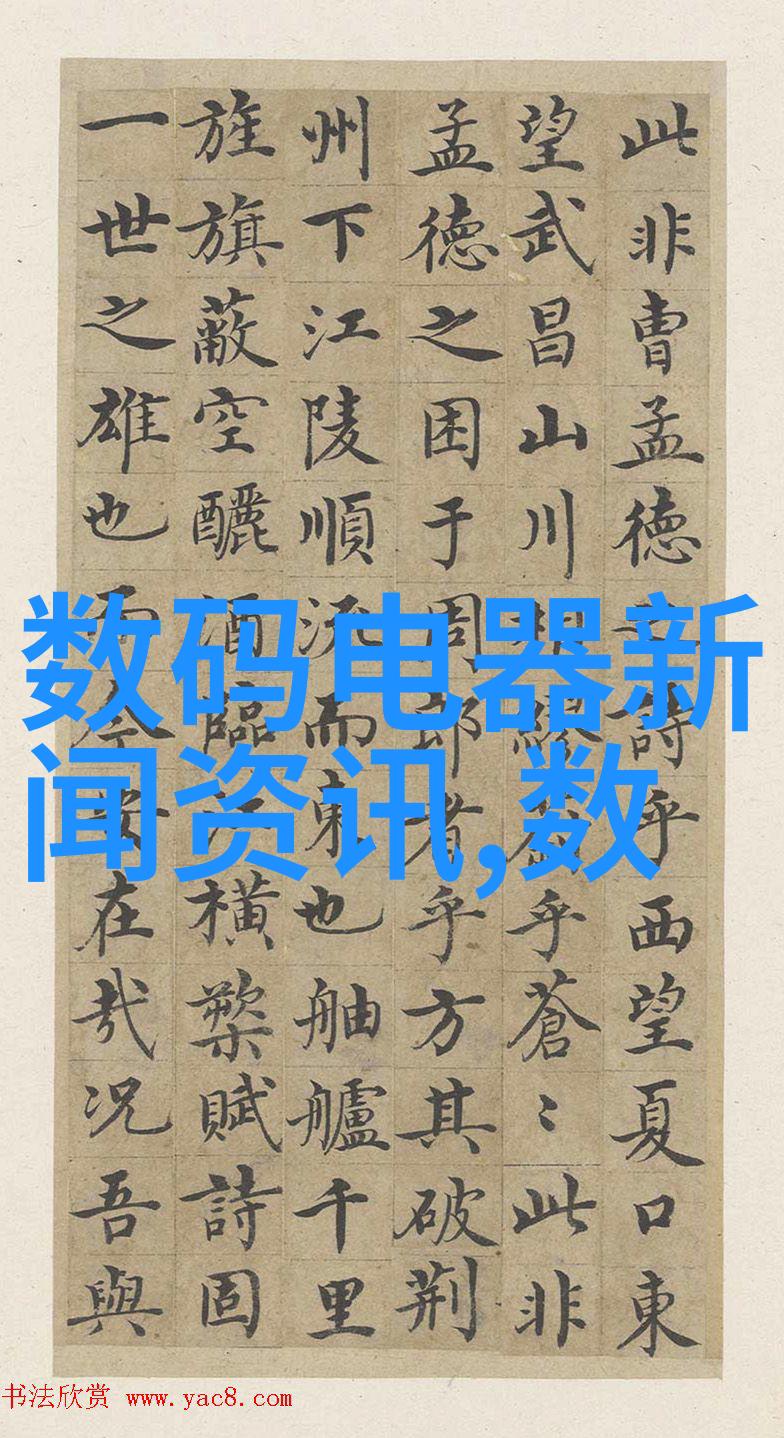 此非曹孟德之詩乎西望夏口東
望武昌山川相繆乎蒼〻此非
孟德之困于周郎者乎方其破荆
州下江陵順流而東也舳艫千里
旌旗蔽空釃酒臨江横槊賦詩固
一世之雄也而今安在哉况吾與
数码电器新
闻资讯,数
书法欣赏 www.yac8.com